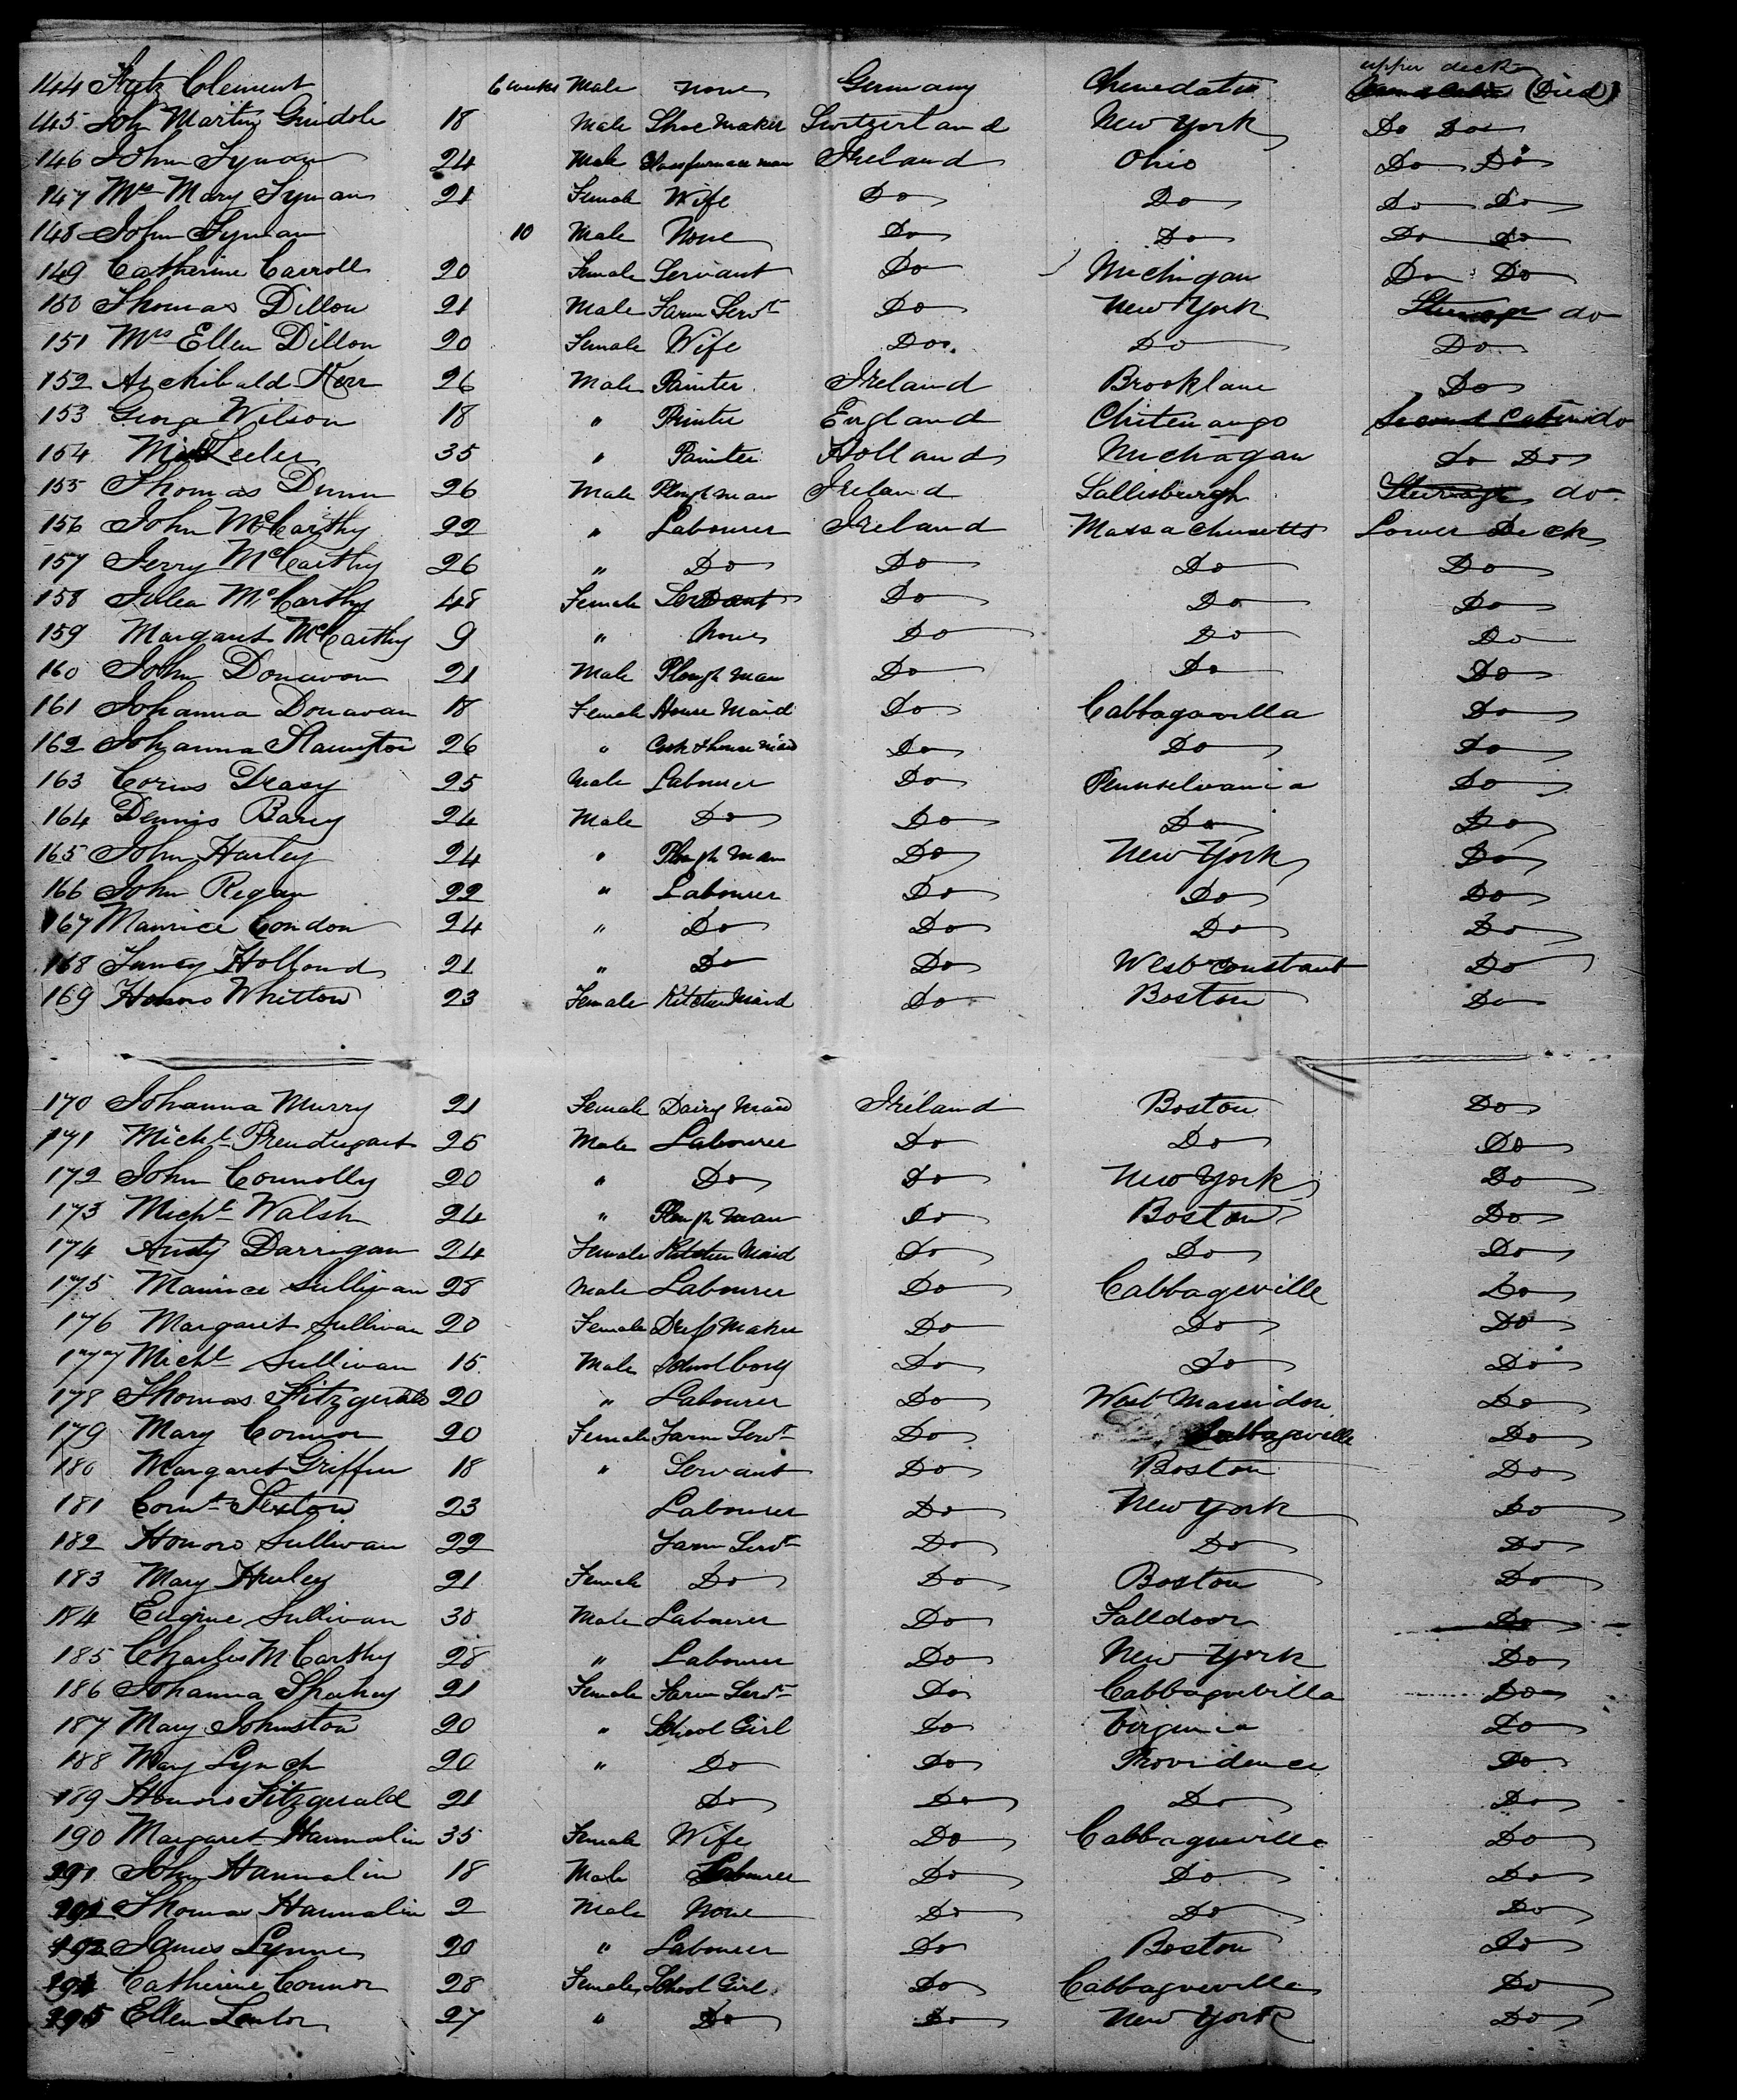 upper deck
144 Fretz Clement 6 weeks Male none Germany Chenedatia (Died)
145 John Martin Grindole 18 Male Shoe Maker Switzerland New York Do Do
146 John Lyman 24 Male Glassfurnace man Ireland Ohio Do Do
147 Mrs Mary Lyman 21 Female Wife Do Do Do Do
148 John Lyman 10 Male None Do Do Do Do
149 Catherine Carroll 20 Female Servant Do Michigan Do Do
150 Thomas Dillon 21 Male Farm Servt Do New York Steerage do
151 Mrs Ellen Dillon 20 Female Wife Do Do Do
152 Archibald Kerr 26 Male Painter Ireland Brooklane Do
153 George Wilson 18 " Printer England Chitenango Second Cabin do
154 Leeler 35 " Painter Holland Michagan Do Do
155 Thomas Dunn 26 Male Ploughman Ireland Sallisburgh Steerage do
156 John McCarthy 22 " Labourer Ireland Massachusetts Lower Deck
157 Jerry McCarthy 26 " Do Do Do Do
158 Julea McCarthy 48 Female Servant Do Do Do
159 Margaret McCarthy 9 " None Do Do Do
160 John Donavan 21 Male Plough Man Do Do Do
161 Johanna Donavan 18 Female House Maid Do Cabbagavilla Do
162 Johanna Stanyton 26 " Cook & house Maid Do Do Do
163 Corns Deasy 25 Male Labourer Do Pennselvania Do
164 Dennis Barry 24 Male Do Do Do Do
165 John Harley 24 " Plough Man Do New York Do
166 John Regan 22 " Labourer Do Do Do
167 Maurice Condon 24 " Do Do Do Do
168 Holland 21 " Do Do West Constant Do
169 Honoro Whitton 23 Female Kitchen Maid Do Boston Do
170 Johanna Murry 21 Female Dairy Maid Ireland Boston Do
171 Michl Prendergast 26 Male Labourer Do Do Do
172 John Connolly 20 " Do Do New York Do
173 Michl Walsh 24 " Plough Man Do Boston Do
174 Andy Darrigan 24 Female Kitchen Maid Do Do Do
175 Maurice Sullivan 28 Male Labourer Do Cabbageville Do
176 Margaret Sullivan 20 Female Dress Maker Do Do Do
177 Michl Sullivan 15 Male Schoolboy Do Do Do
178 Thomas Fitzgerald 20 " Labourer Do West Do
179 Mary Connor 20 Female Farm Servt Do Cabbageville Do
180 Margaret Griffin 18 " Servant Do Boston Do
181 Corns Sexton 23 Labourer Do New York Do
182 Honoro Sullivan 22 Farm Servt Do Do Do
183 Mary Hurley 21 Female Do Do Boston Do
184 Eugine Sullivan 30 Male Labourer Do Falldoor Do
185 Charles McCarthy 28 " Labourer Do New York Do
186 Johanna Shahey 21 Female Farm Servt Do Cabbagevilla Do
187 Mary Johnston 20 " School Girl Do Virginia Do
188 Mary Lynch 20 " Do Do Providence Do
189 Honoro Fitzgerald 21 Do Do Do Do
190 Margaret Hannalin 35 Female Wife Do Cabbageville Do
191 John Hannalin 18 Male Labourer Do Do Do
192 Thomas Hannalin 2 Male None Do Do Do
193 James Lynne 20 " Labourer Do Boston Do
194 Catherine Connor 28 Female School Girl Do Cabbageville Do
195 Ellen Lawlor 27 " Do Do New York Do